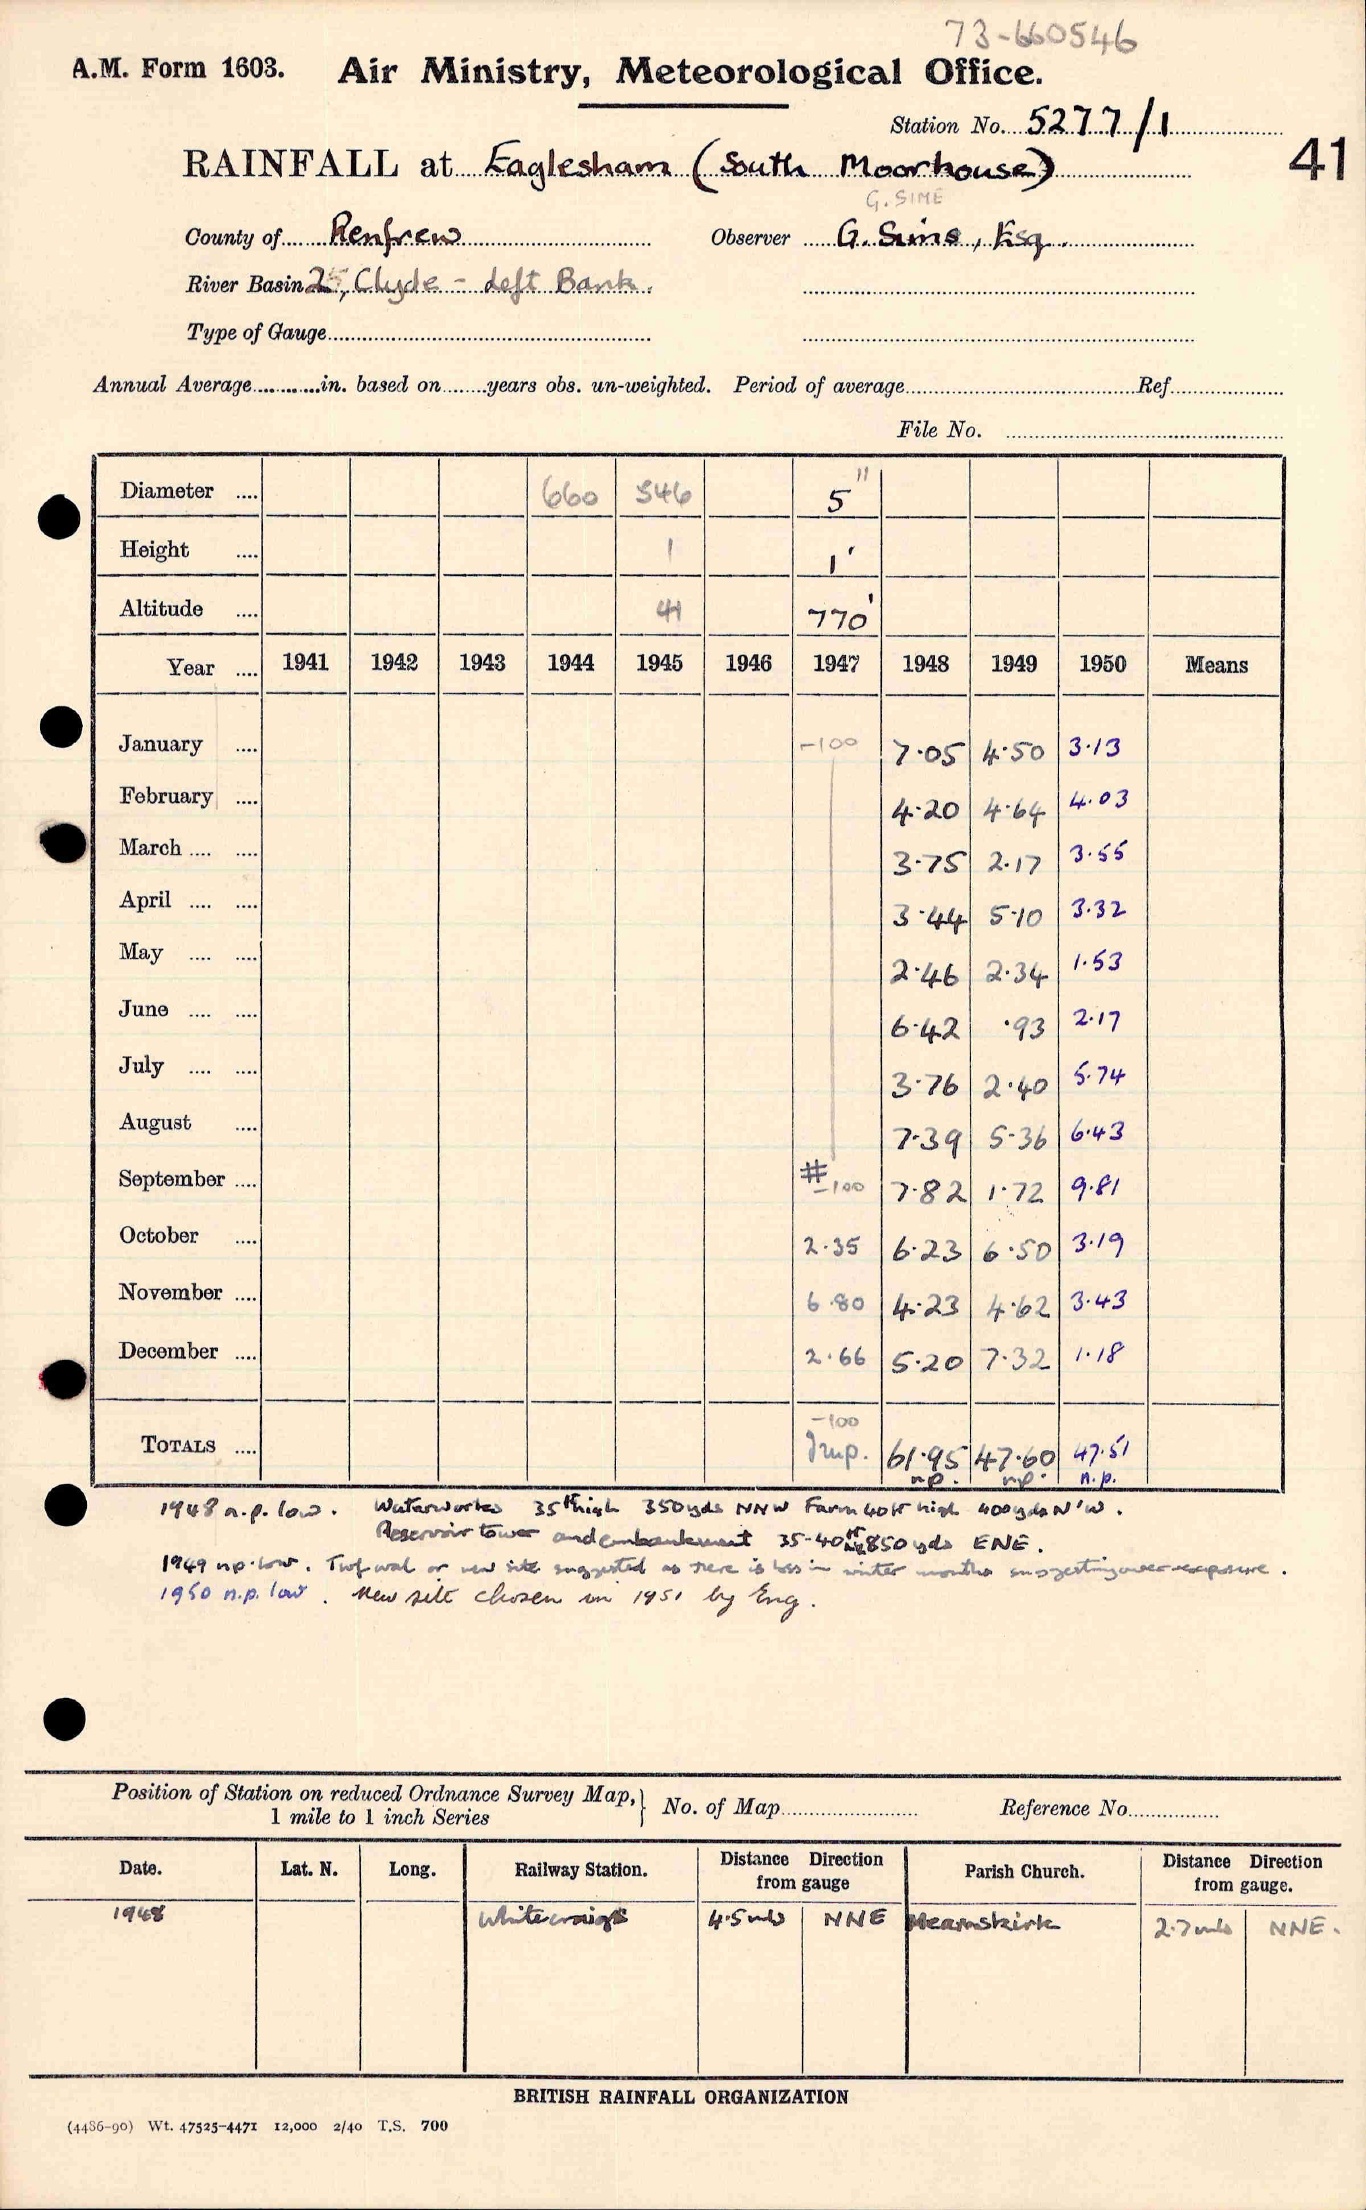 73-660546
A.M. Form 1603. Air Ministry, Meteorological Office.
Station No. 5277/1
41
RAINFALL at Eaglesham (South Moorhouse)
G. SIME
County of Renfrew Observer G. Sims, Esq.
River Basin 25, Clyde - Left Bank.
Type of Gauge
Annual Average in. based on years obs. un-weighted. Period of average Ref.
File No.
Diameter 660 546 5"
Height 1 1'
Altitude 41 770'
Year 1941 1942 1943 1944 1945 1946 1947 1948 1949 1950 Means
January -100 7.05 4.50 3.13
February 4.20 4.64 4.03
March 3.75 2.17 3.55
April 3.44 5.10 3.32
May 2.46 2.34 1.53
June 6.42 .93 2.17
July 3.76 2.40 5.74
August 7.39 5.36 6.43
September # -100 7.82 1.72 9.81
October 2.35 6.23 6.50 3.19
November 6.80 4.23 4.62 3.43
December 2.66 5.20 7.32 1.18
-100
TOTALS Imp. 61.95 47.60 47.51
n.p. n.p. n.p.
1948 n.p. low. Waterworks 35ft high 350yds NNW Farm 40ft high 400yds N'W.
Reservoir tower and embankment 35-40ft 850yds ENE.
1949 n.p. low. Turf wall or new site suggested as there is loss in winter months suggesting over-exposure.
1950 n.p. low. New site chosen in 1951 by Eng.
Position of Station on reduced Ordnance Survey Map, 1 mile to 1 inch Series } No. of Map Reference No.
Date. Lat. N. Long. Railway Station. Distance Direction from gauge Parish Church. Distance Direction from gauge.
1948 Whitecraigs 4.5 mls NNE Mearnskirk 2.7 mls NNE.
BRITISH RAINFALL ORGANIZATION
(4486-90) Wt. 47525-4471 12,000 2/40 T.S. 700